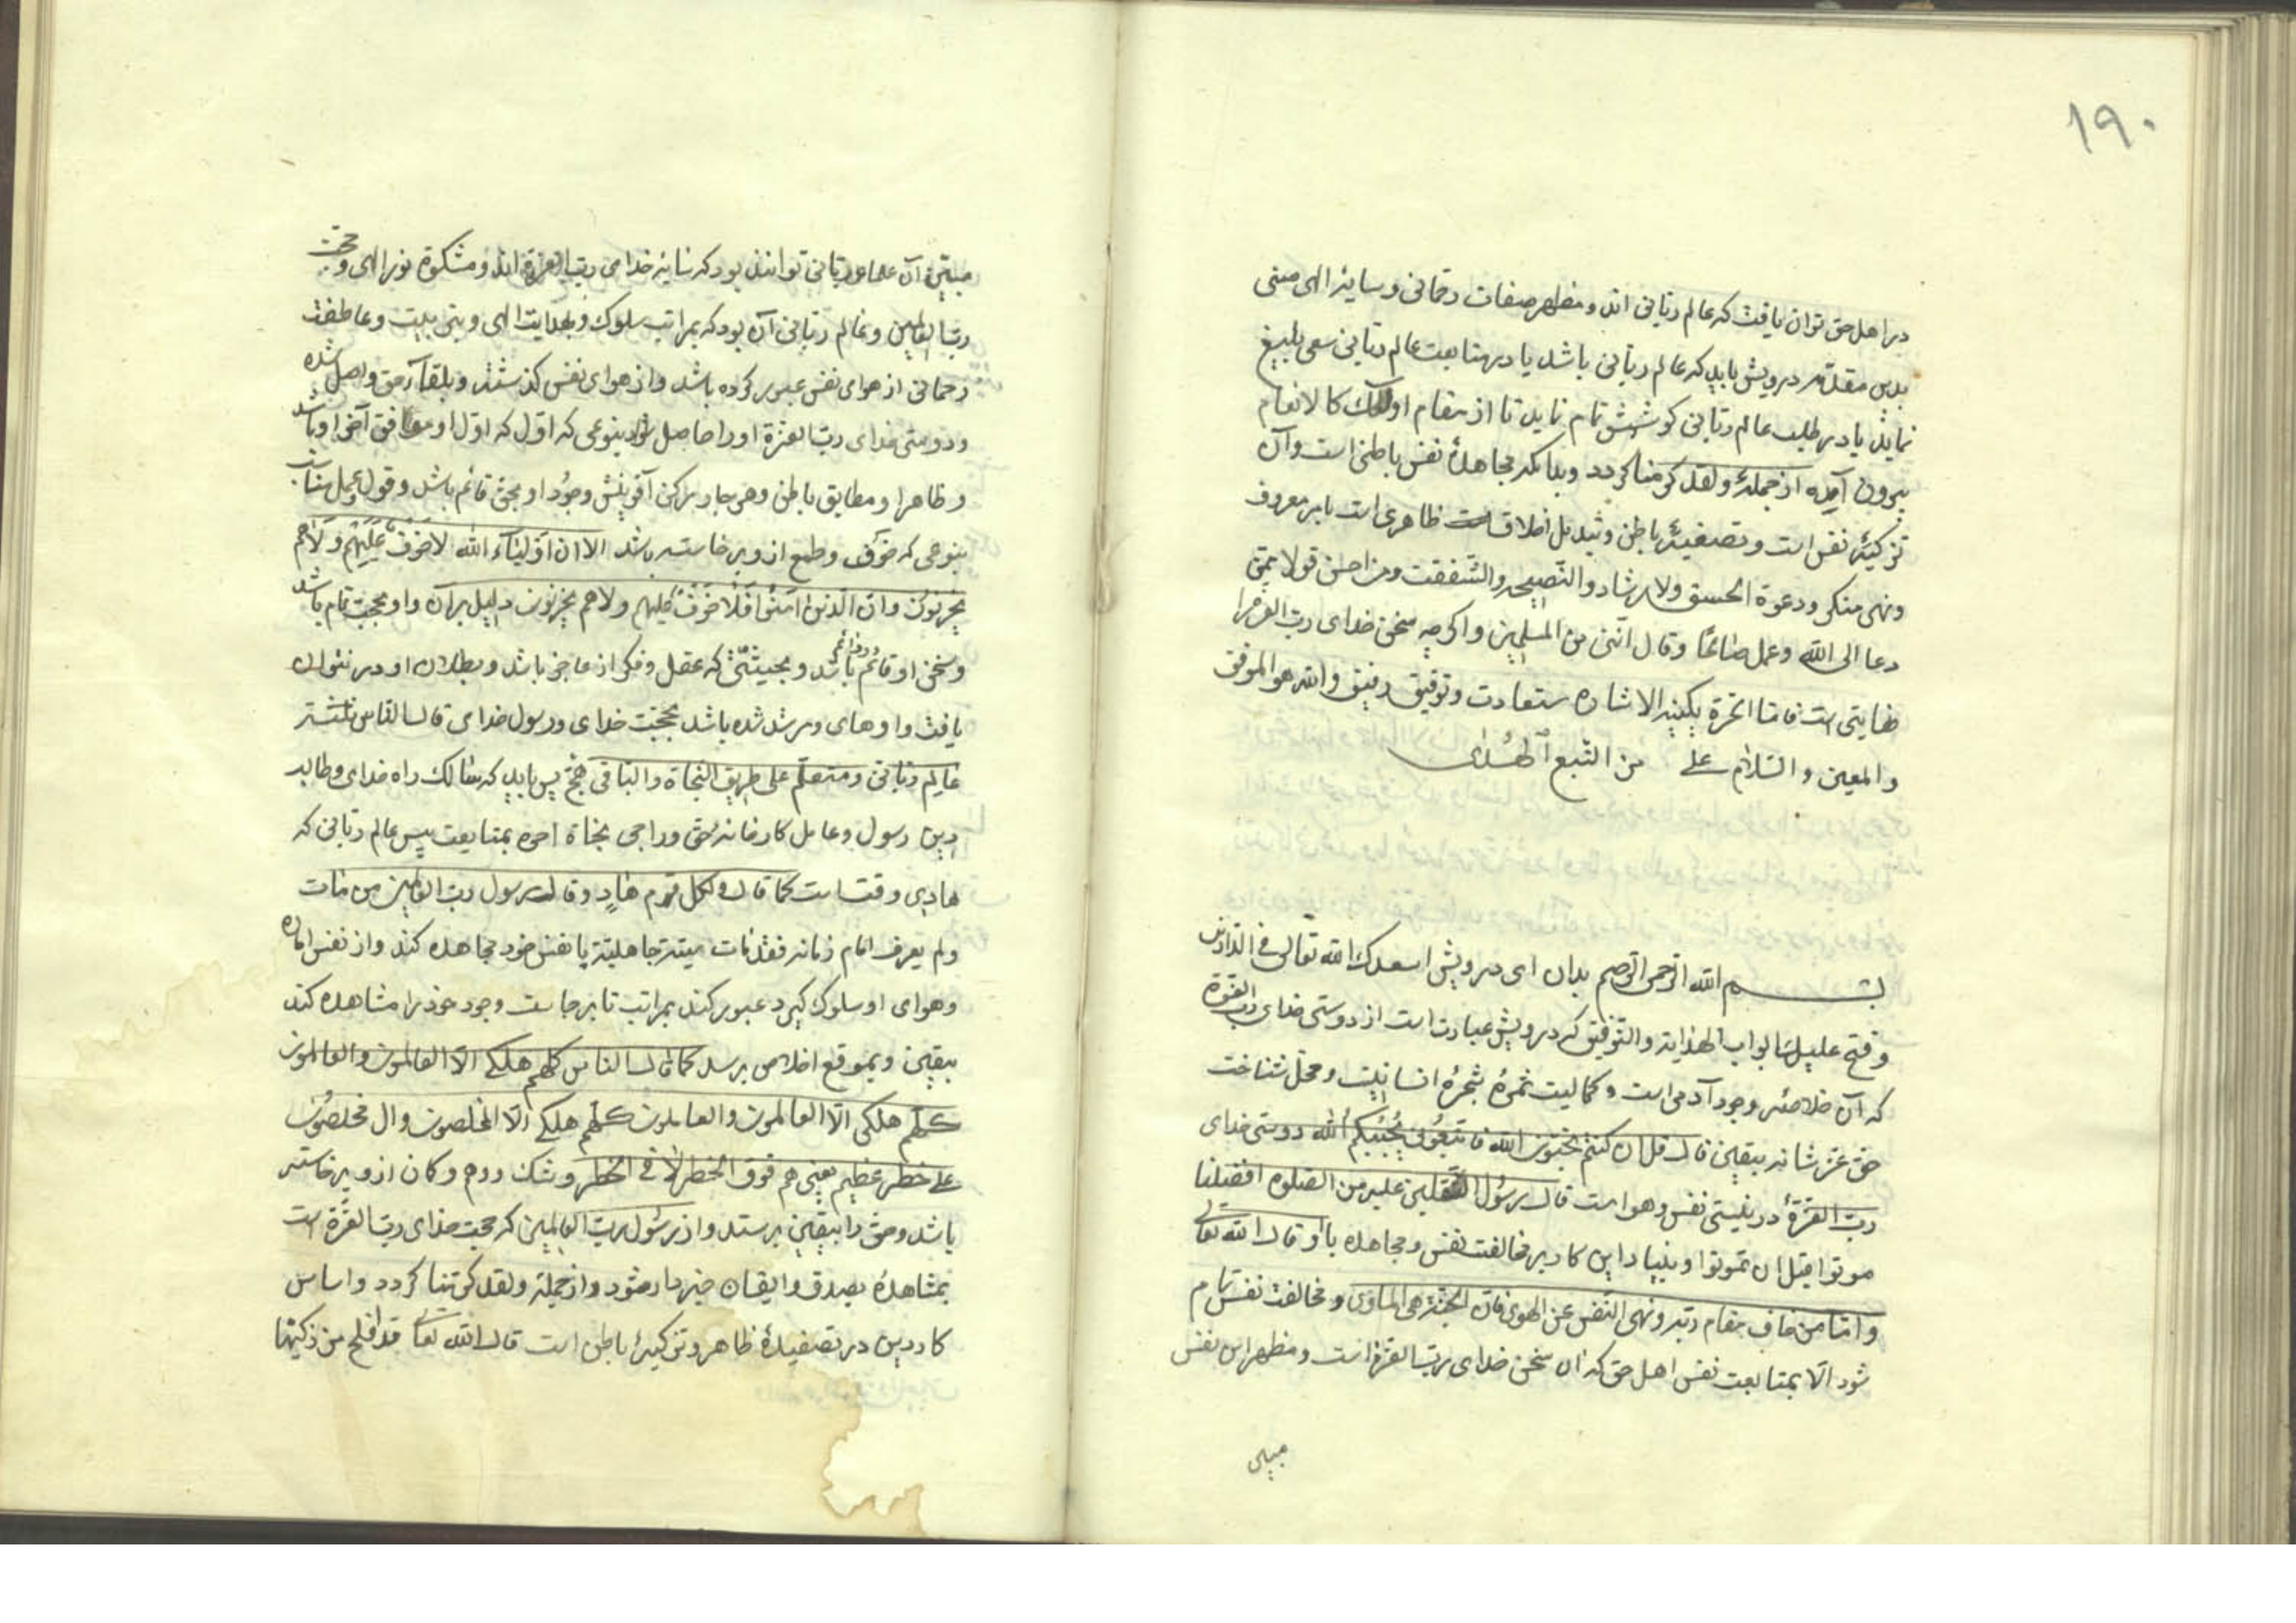 ۱۹۰
در اهل حق توان یافت که عالم ربانی اند و مظهر صفات رحمانی و سایهٔ الهی مبنی
بدین مقدمه درویش باید که عالم ربانی باشد یا در متابعت عالم ربانی سعی بلیغ
نماید یا در طلب عالم ربانی کوشش تمام نماید تا از مقام اولئک کالانعام
بیرون آمده از جملهٔ ولقد کرمنا گردد و بدانکه مجاهدهٔ نفس باطنی است و آن
تزکیهٔ نفس است و تصفیهٔ باطن و تبدیل اخلاق ظاهری است بامر معروف
و نهی منکر و دعوة الحسنی ولارشاد والنصیحه والشفقت ومن احسن قولا ممن
دعا الی الله وعمل صالحًا وقال اننی من المسلمین و اگرچه سخن خدای رب العزة را
نهایتی است فامّا الحرّة یکفیه الاشاره سعادت و توفیق رفیق والله هو الموفق
والمعین والسّلام علی من اتّبع الهُدی
بسم الله الرحمن الرحیم بدان ای درویش اسعدک الله تعالی فی الدّارین
وفتح علیک ابواب الهدایة والتّوفیق که درویش عبارت است از دوستی خدای رب العزة
که آن خلاصهٔ وجود آدمی است و کمالیت ثمرهٔ شجرهٔ انسانیت و محل شناخت
حق عز شانه بیقین قال قل ان کنتم تحبّون الله فاتبعونی یحببکم الله دوستی خدای
ربّ العزّة در نیستی نفس و هوا است قال رسول الثقلین علیه من الصلوة افضلها
موتوا قبل ان تموتوا و بنیاد این کار بر مخالفت نفس و مجاهده با او قال الله تعالی
وامّا من خاف مقام ربّه ونهی النّفس عن الهوی فانّ الجنّة هی الماوی و مخالفت نفس تمام
شود الّا بمتابعت نفس اهل حق که آن سخن خدای ربّ العزّة است و مظهر این نفس
مبین آن علماء ربّانی توانند بود که سایهٔ خدای ربّ العزة اند و مشکوة نور الهی و حجّت
ربّ العالمین و عالم ربّانی آن بود که بمراتب سلوک و بهدایت الهی و بتربیت و عاطفت
رحمانی از هوای نفس عبور کرده باشد و از هوای نفس گذشته و بلقاء حق واصل شده
و دوستی خدای ربّ العزّة او را حاصل شود بنوعی که اوّل که اوّل او موافق آخر او باشد
و ظاهر او مطابق باطن و هر چار رکن آفرینش وجود او بحق قائم باشد و قول و عمل
بنوعی که خوف و طمع ازو برخاسته باشد الا ان اولیاء الله لاخوف علیهم ولاهم
یحزنون وان الّذین امنوا فلا خوف علیهم ولاهم یحزنون دلیل بر آن و او بحجّت تمام باشد
و سخن او قائم باشد و بحیثیّتی که عقل و فکر از عاجز باشد و بطلان او در نتوان
یافت و او هادی و مرشد شده باشد بحجّت خدای و رسول خدای قال النّاس ثلثة
عالم ربّانی ومتعلّم علی طریق النجاة والباقی همج پس باید که سالک راه خدای و طالب
دین رسول و عامل کارخانه حق و راجی نجاة اخره بمتابعت پس عالم ربّانی که
هادی وقت است کما قال ولکل قوم هادٍ وقال رسول ربّ العالمین من مات
ولم یعرف امام زمانه فقد مات میتة جاهلیّة یا نفس خود مجاهده کند و از نفس اماره
و هوای او سلوک گیرد عبور کند بمراتب تا برخاست وجود خود را مشاهده کند
بیقین و بموقع اخلاص برسد کما قال الناس کلهم هلکی الّا العالمون والعالمون
کلّهم هلکی الّا العاملون والعاملون کلّهم هلکی الّا المخلصون وال مخلصون
علی خطر عظیم یعنی هم فوق الخطر لا فی الخطر و شک و وهم و گمان ازو برخاسته
باشد و حق را بیقین پرستد و از رسول ربّ العالمین که محبت خدای ربّ العزّة است
بمشاهدهٔ بصدق و ایقان خبردار شود و از جملهٔ ولقد کرّمنا گردد و اساس
کار دین در تصفیهٔ ظاهر و تزکیهٔ باطن است قال الله تعالی قد افلح من زکیّها